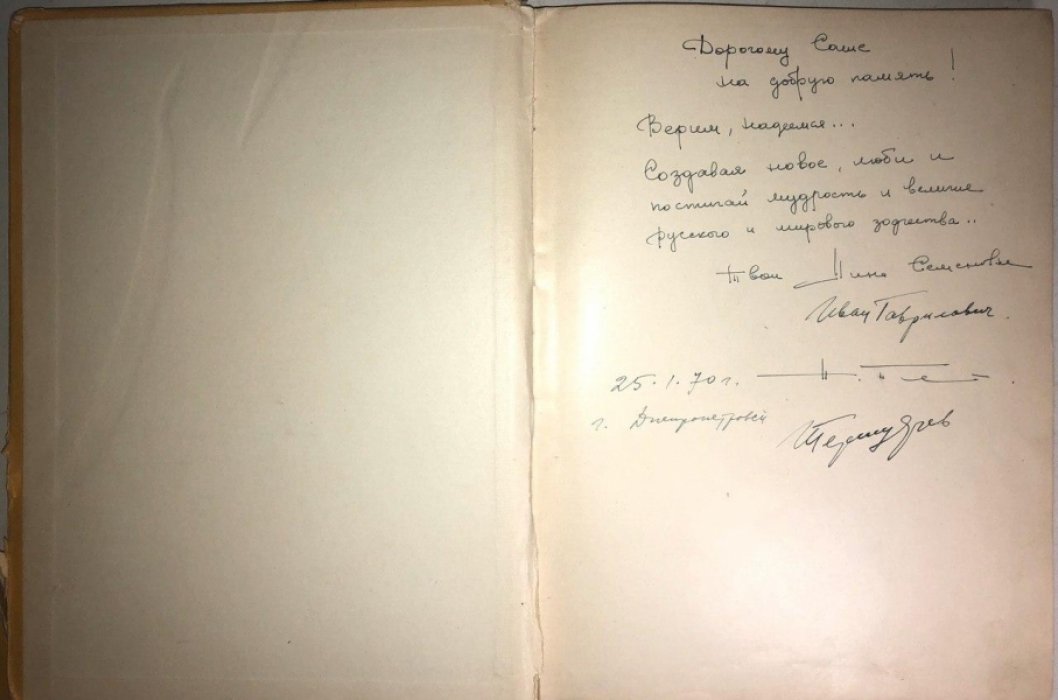 Дорогому Саше
на добрую память!
Верим, надеемся...
Создавая новое, люби и
постигай мудрость и величие
русского и мирового зодчества..
Твои Нина Семеновна
Иван Гаврилович.
25.1.70 г.
г. Днепропетровск